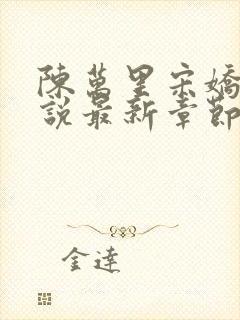 陳萬里宋嬌
說最新章節
金達